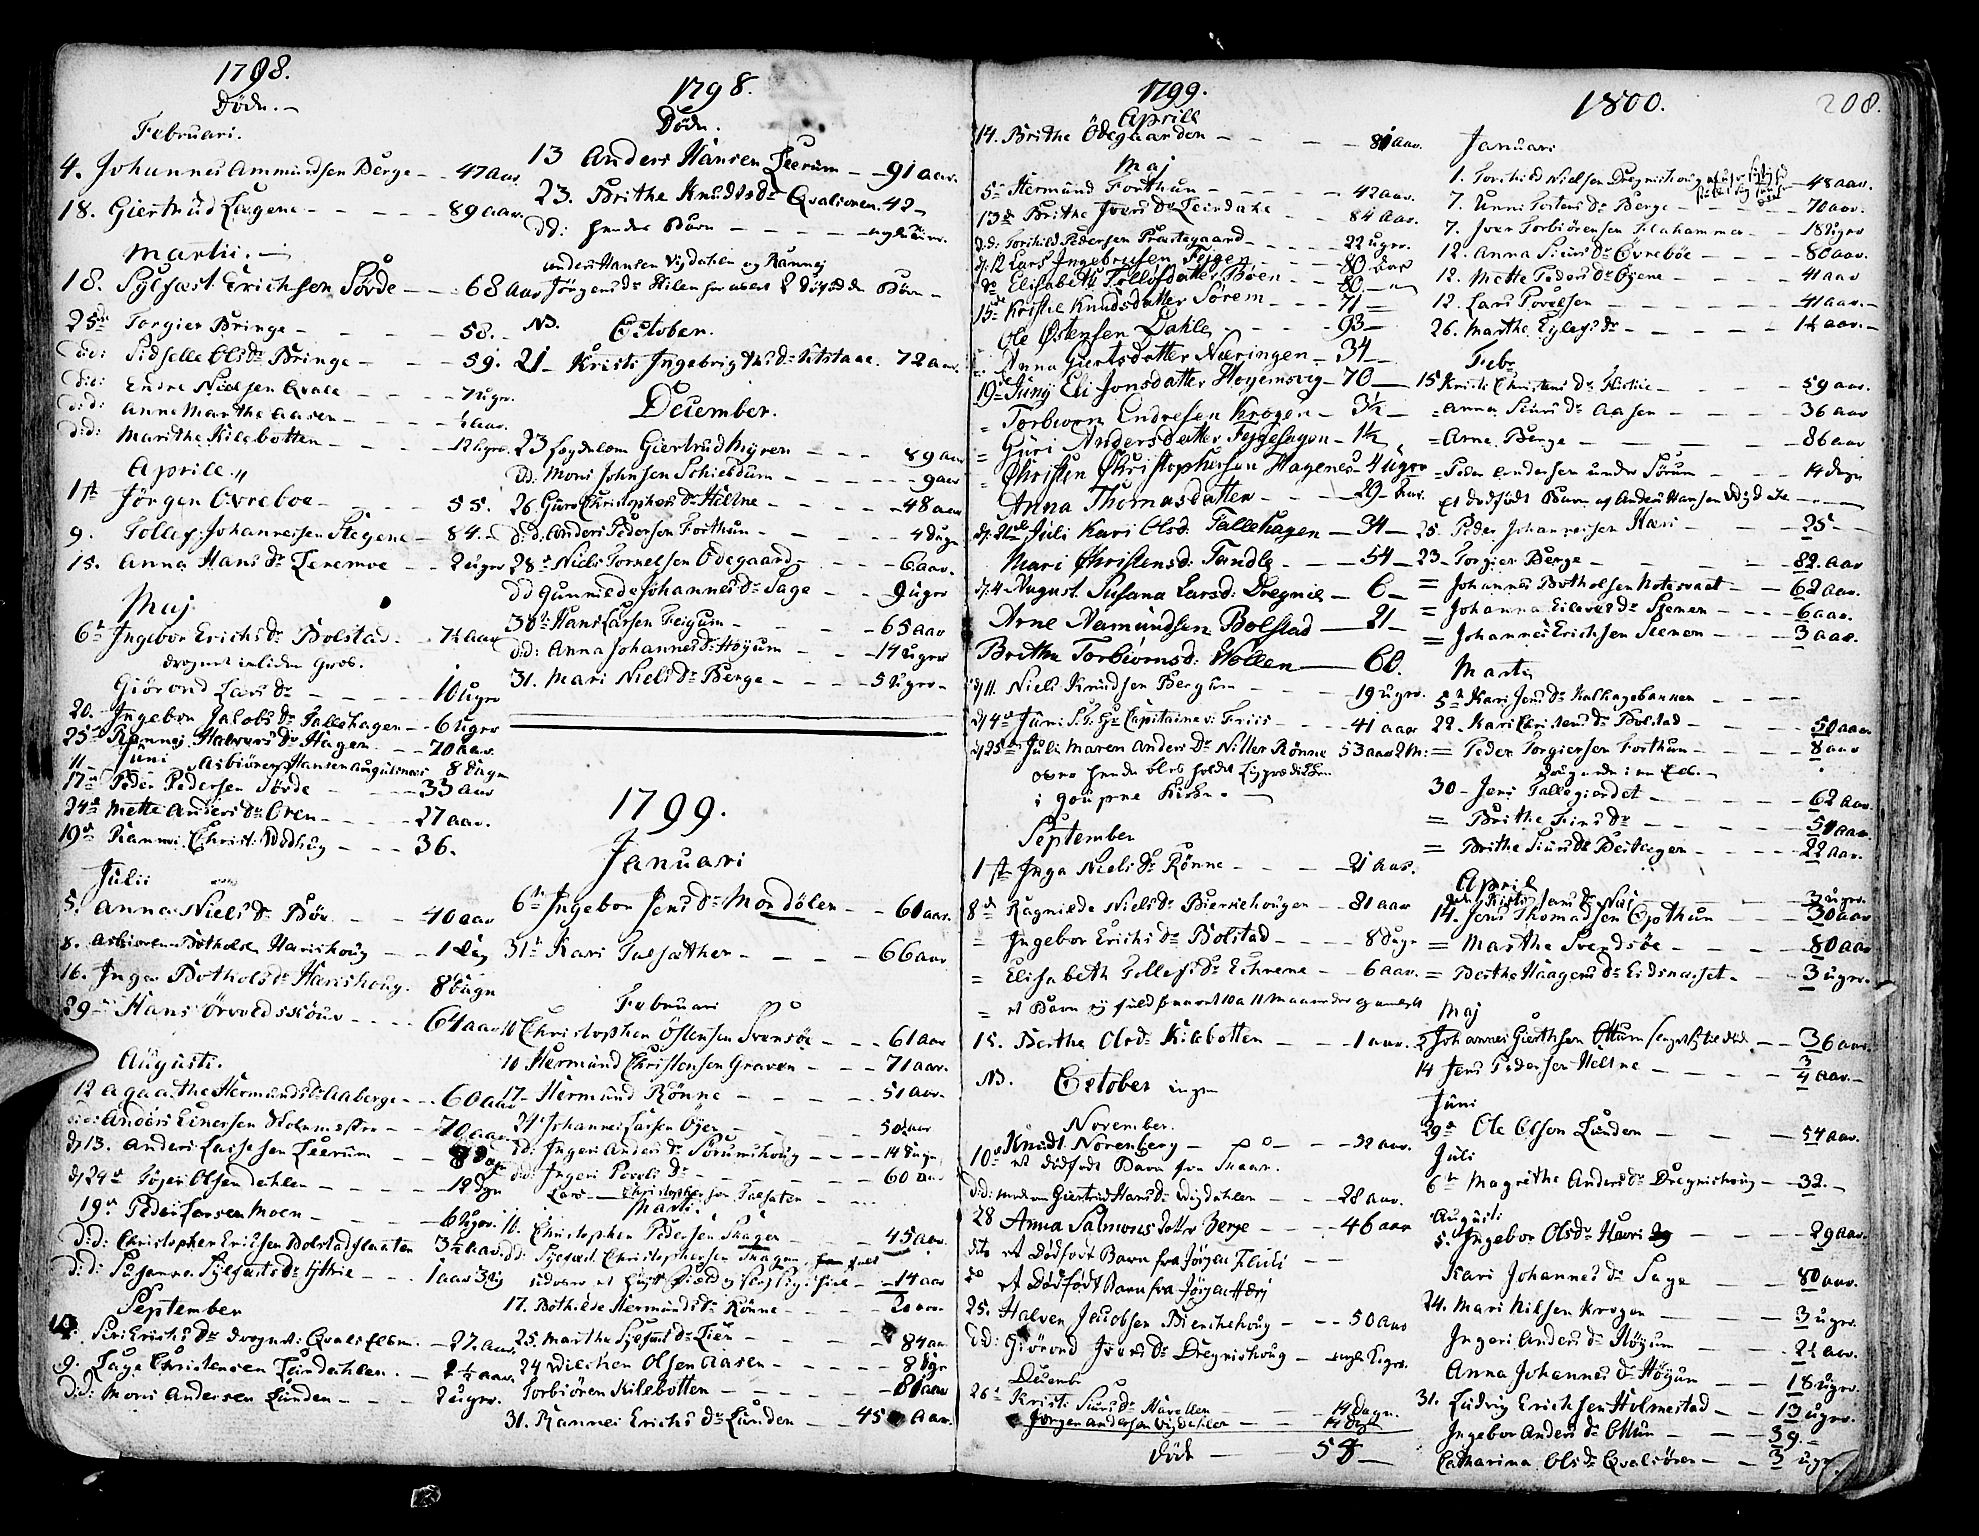 1798.
Döde. -
Februari.
4. Johannes Ammundsen Berge - - 47 aar
18. Giertrud Lægene - - - - - 89 aar.
Martii. -
18. Sylfæst Erichsen Sørde - - 68 aar
25de Torgier Bringe - - - - - 58.
did: Sidselle Olsdr Bringe - - - 59.
did: Endre Nielsen Qvale - - - - 7 ugr.
did: Anne Marthe Aasen - - - - ½ aar.
did: Marithe Kilebotten - - - - 12 ugr.
Aprile.
1st Jörgen Övreboe - - - - 55.
9. Tollef Johannesen Stegene - 84. -
15. Anna Hansdr Leremoe - - 2 ugr
Maj.
6te Ingebor Erichsdr Bolstad - 7½ aar
Giörond Larsdr - - - - 10 ugr
20. Ingebor Jacobsdr Tallehagen - 6 ugr
25de Rannej Halvorsdr Hagen - - 70 aar.
11 - Juni Asbiören Hansen Augulsnæs 8 dage
17de Peder Pedersen Sörde - - - 33 aar
24de Mette Andersdr Oren - - - 27 aar.
19de Rannei Christ: - - - 36.
Julii
5. Anna Nielsdr Böe - - 40 aar
8. Asbiören Botholsen Harishoug - - 1 dag
16. Inga Botholsdr Harishoug. 8 dage
29 - Hans Örvedsskouv - - - - 64 aar
Augusti.
12 Agaathe Hermundsdr Aaberge - - 60 aar
did: Anders Einersen Holmestr - - 70 aar
d. 13. Anders Lassesen Leerum - - 8 dage
d. 24de Töger Olsen Dahlen - - - 12 dage
19de Peder Larsen Moen - - - - 6 ugr.
did: Christopher Erichsen Bolstadslaaten 3½ aar.
did: Susanna Sylfæstsdr Yttrie - - - 1 aar 3
September
Siri Erichsdr Qvalis Elben. - - 27 aar
9. Lage Christensen Lundahlen. - 2½ aar.
did: Mons Andersen Lunden - - - 2 ugr.
1798.
Döde.
13 Anders Hansen Leerum - - 91 aar.
23. Brithe Knudtsdr Qvalioren. 42 -
did: hendes Barn - - - - -
Anders Hansen Vigdahlen og Rannej
Jörgensdr Kilen 2 dödfödde Börn -
NB. October.
21 - Kristi Ingebrigthsdr Utstaae. 72 aar.
December.
23 Giertrud Myren - - - 89 aar
did: Mons Johnsen Schiesdum - - - - - 9 aar
26. Guro Christophersdr Heltne - - - - 48 aar
did: Anders Pedersen Forthun - - - - - 4 dage
28de Niels Tornelsen Ödegaard - - - - 6 aar.
did Gunnilde Johannesdr Sage - - 9 ugr
30te Hans Larsen Feigum - - - - 65 aar
did: Anna Johannesdr Höyum - - - 14 ugr
31. Mari Nielsdr Berge - - - - 5 ugr -
1799.
Januari
6te Ingebor Jensdr Mondölen - - 60 aar.
31te Kari Talsæther - - - - 66 aar.
Februari
10 Christopher Östensen Svensöe - - - 61 aar
10 Hermund Christensen Graven - - - 71 aar.
17 - Hermund Rönne - - - - - 51 aar.
24 Johannes Larsen Öyen - - - - 50 aar
did: Ingeri Andersdr Sorumshoug - - - 14 dage
did: Ingeri Povelsdr - - - - - 60 aar
Lars Christophersen Talsæten - - -
Marti.
11. Christopher Pedersen Skagen - - - 45 aar.
did: Sylfæst Christophersen Skagen
- 14 aar
17. Bothilde Hermundsdr Rönne - - - - 20 aar.
25 Marthe Sylfæstdr Lier - - - 84 aar
24 Willchen Olsen Aasen - - - - - 8 dgr
Torbiören Kilebotten - - - - 81 aar
31. Rannei Erichsdr Lunden - - 45 aar.
1799.
Aprill
14. Brithe Ödegaarden - - - - 81 aar.
Maj
5te Hermund Forthun - - - - - 42 aar.
13de Brithe Iversdr Leirdahe - - - 84 aar.
d: d: Torchild Pedersen Præstegaard - - - - 22 ugr.
d: 12 Lars Ingebretsen Feigen - - - 80 aar
do Elisabeth Tollefsdatter Böen - 80 -
15de Kristie Knudsdatter Sörem - - - 71 =
Ole Östensen Dahle - - - - 93 -
Anna Giertsdatter Næringen - 34 -
19 - Junij Eli Jonsdatter Høyemsvig - 70 -
= Torbiorn Endresen Krogen - 3½ -
= Guri Andersdatter Feggehagen - 1½
= Christen Christophersen Hagenes 4 ugr
Anna Thomasdatter - - - 29 - aar.
d: 21de Juli Kari Olsd: Tallehagen - 34 -
Mari Christensd: Tandle - - - 54 -
d: 4 August Susana Larsd: Dregnie - 6 -
Arne Amundsen Bolstad - 21 -
Brithe Torbiornsd: Wollen - 60.
d: 11. Niels Knudsen Bergum - - - 19 ugr.
d: 4de Juni: S. T. Hr Capitaine v: Friis - - - 41 aar
d: 25de Juli Maren Andersdr Niller Rönne 53 aar 2 M:
i Goupne Kirke -
September
1 ste Inga Nielsdr Rönne - - - 21 aar.
8de Ragnilde Nielsdr Bierkehougen - - 81 aar.
= Ingebor Erichsdr Bolstad - - - - 8 dage
= Elisabeth Tollefsdr Echrene - - 6 aar.
= et Barn 10 a 11 Maaneder gammelt
15. Berthe Olsdr Kilebotten - - - 1 aar.
NB. October ingen
November.
10de Knudt Norenberg - - - - 32 aar.
et dödfödt Barn fra Skaar.
did: Giertrud Hansdr Vigdahlen - - - 28 aar.
28 Anna Salmons dotter Berge - - - 46 aar
dito et Dödfödt Barn fra Jörgen Flulii - -
do et Dödfödt Barn fra Jörgen Hærj
25. Halver Jacobsen Bierchehoug - - - 50 aar
did: Giörond Iversdr Dregnishoug -
Decembr
26de Kristi Siursdr Havellen - - - - 14 dage.
Jorgen Andersen Vigdahlen - - - 14 dage
Död - - - 58 -
1800. 208.
Januari
1. Torchild Nielsen Dregnishoug - 48 aar.
7. Unni Torstensdr Berge - - - - 70 aar.
7. Iver Torbiörensen Flahammer - - 18 ugr
12. Anna Siursdr Övreböe - - - - 80 aar.
12. Mette Pedersdr Öyene - - - - 41 aar
12. Lars Povelsen - - - - - 41 aar.
26. Marthe Eylefsdr - - - - - 1½ aar. -
Febr
15 Kristi Christensdr - - - - 59 aar.
= Anna Siursdr Aasen - - - - 36 aar
= Arne Berge - - - - - 86 aar
= Peder Andersen under Sörum - - - 14 dage
Et dödfödt Barn af Anders Hansen - - -
25. Peder Johannesen Hæri - - - - 25 -
23 - Torgier Berge - - - - - 82 aar
= Johannes Botholsen Notesvaet - - 62 aar.
= Johanna Eilevsdr Stenen - - - - 6 aar.
= Johannes Erichsen Stenen - - - 3 aar.
Marti
5te Kari Jensdr Kalhagebannen - - -
22. Kari Christensdr Bolstad - - - - 50 aar
= Peder Torgiersen Forthun - - - - 8 aar
30 - Jens Tallegierdet - - - - 62 aar
= Brithe Finsdr - - - - - 50 aar
= Brithe Siursdr Bertaegen - - - - 22 aar.
April
Kristi Jensdr - - - 3 ugr.
14. Jens Thomassen Opthun - - - 30 aar
= Marthe Svendsöe - - - - - 80 aar
= Berthe Haagensdr Eidsnæsset - - 3 ugr.
Maj
2 Johannes Gierthsen Ottum - - 36 aar.
14 Jens Pedersen Heltne - - - - ¾ aar. -
Juni
29de Ole Olson Lunden - - - - 54 aar.
Juli
6te Magrethe Andersdr Dregnishoug - - 32. -
Augusti
5. Ingebor Olsdr Havri - - - - 29 aar.
Kari Johannesdr Sage - - - 80 aar.
24. Mari Nilsen Krogen - - - 3 ugr.
Ingeri Andersdr Höyum - - - 2½ aar.
Anna Johannesdr Höyum - - - 18 ugr.
31. Ludvig Erichsen Holmestad - - 13 ugr.
Ingebor Andersdr Ottum - - 39. =
Catharina Olsdr Qvaliören - - 3 ugr.